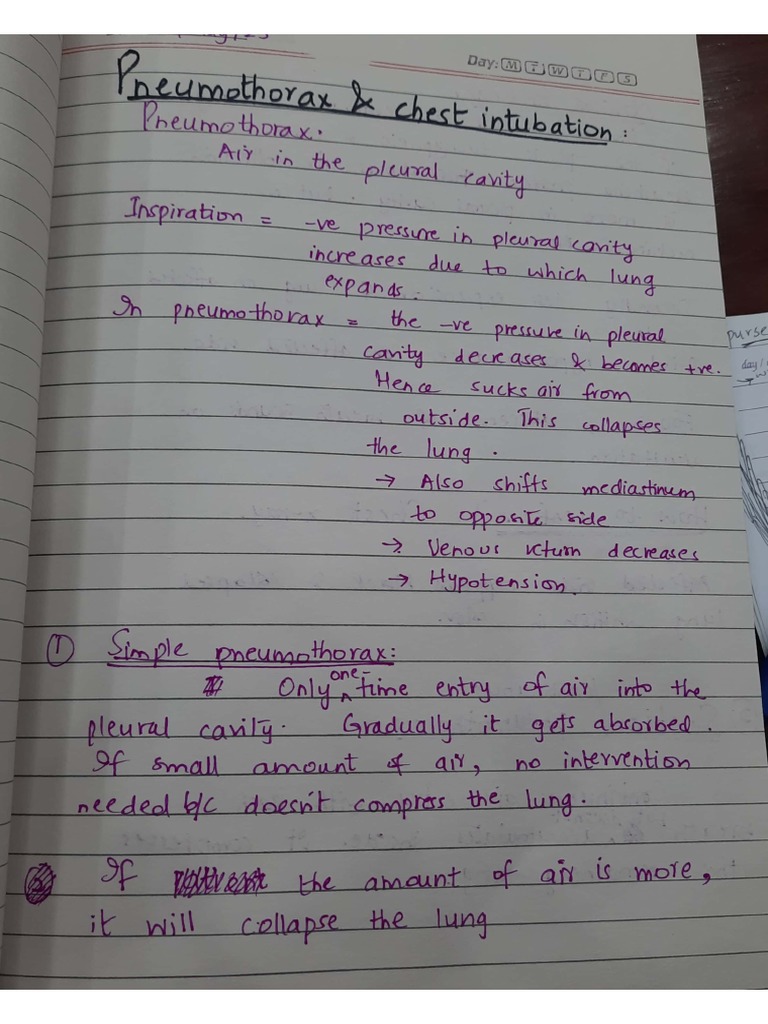 Day: M T W T F S
Pneumothorax & chest intubation:
Pneumothorax.
Air in the pleural cavity
Inspiration = -ve pressure in pleural cavity
increases due to which lung
expands.
In pneumothorax = the -ve pressure in pleural
cavity decreases & becomes +ve.
Hence sucks air from
outside. This collapses
the lung.
→ Also shifts mediastinum
to opposite side
→ Venous return decreases
→ Hypotension.
① Simple pneumothorax:
Only one-time entry of air into the
pleural cavity. Gradually it gets absorbed.
If small amount of air, no intervention
needed b/c doesn't compress the lung.
If the amount of air is more,
it will collapse the lung
purse
day/